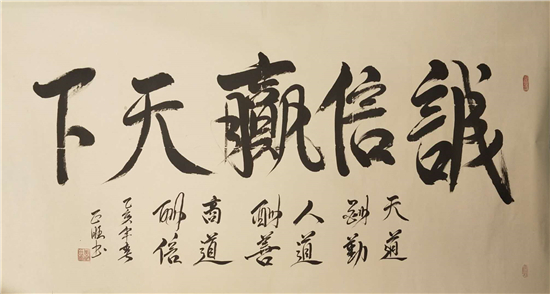 誠信贏天下
天道
酬勤
人道
酬善
商道
酬信
亥年春
书